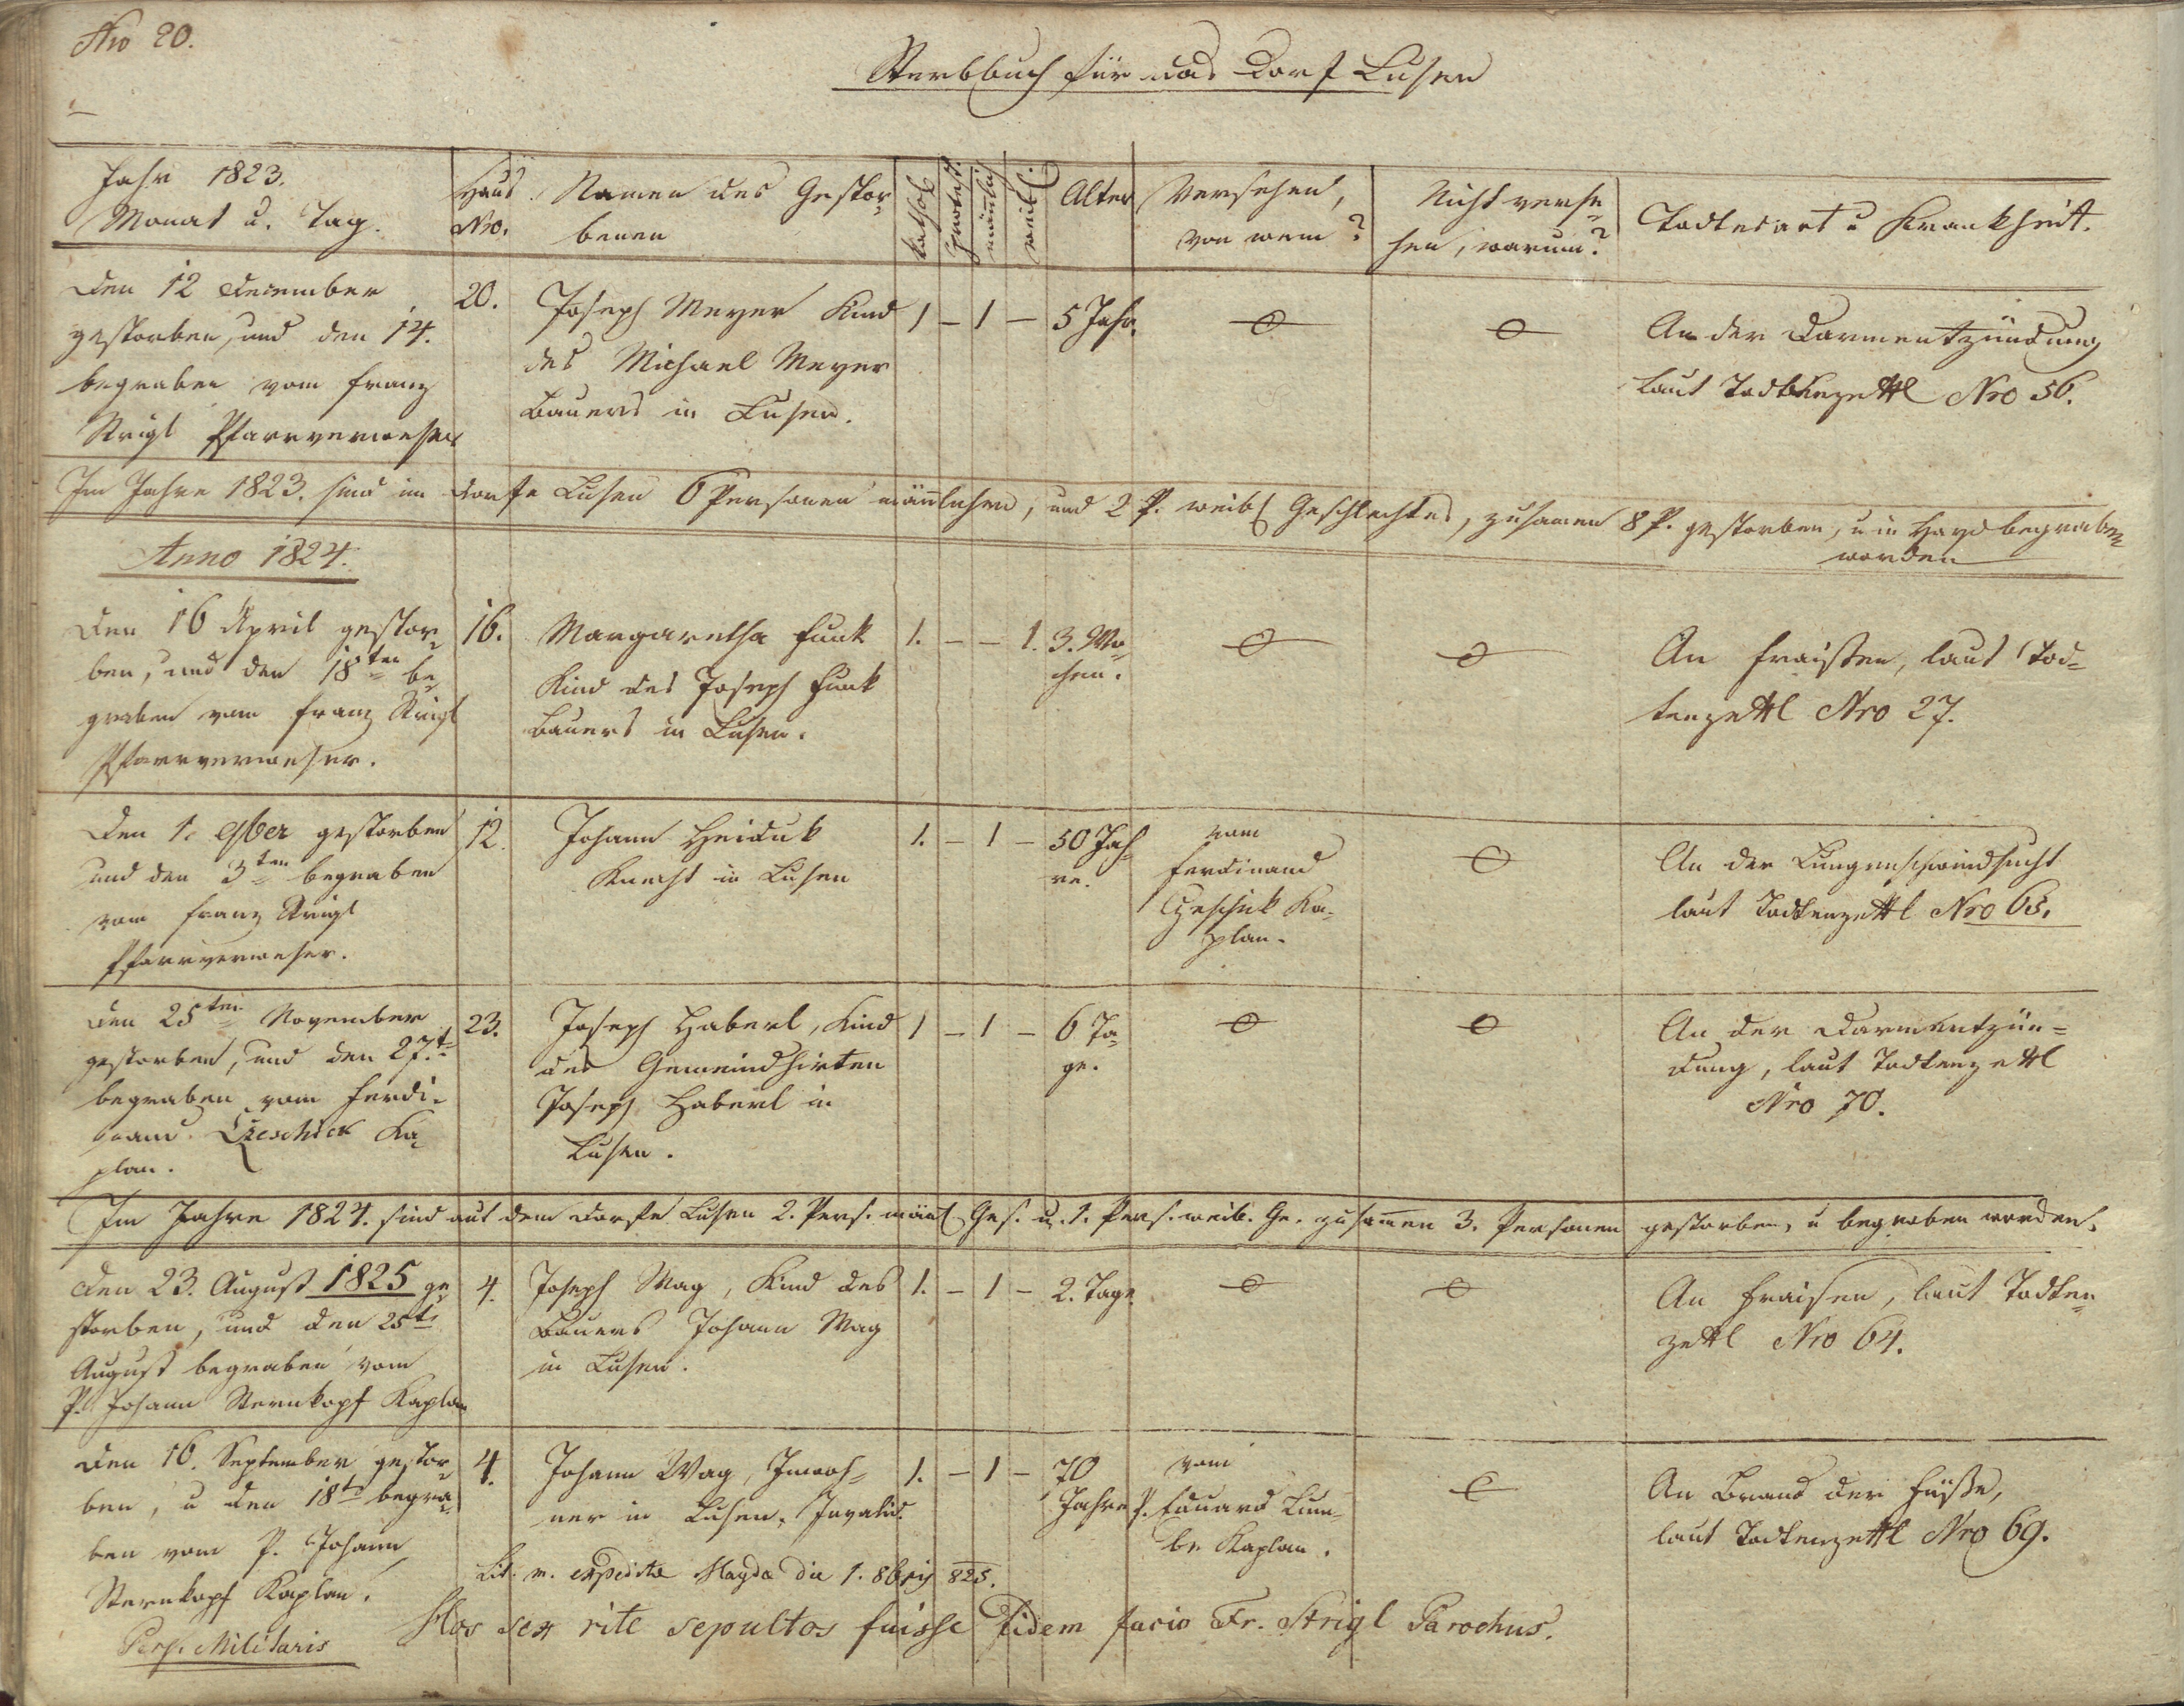 Nro 20.
Sterbbuch für das Dorf Lusen
Jahr 1823.
Monat u. Tag.
Haus
Nro.
Namen des Gestor-
benen
kathol.
protest.
mänlich
weibl.
Alter
Versehen,
von wem?
Nicht verse-
hen, warum?
Todtesart u Krankheit.
Den 12 December
gestorben, und den 14.
begraben vom Franz
Strigl Pfarrverweser
20.
Joseph Meyer Kind
des Michael Meyer
Bauers in Lusen.
1 – 1 –
5 Jahr.
An der Darmentzündung
laut Todtenzettl Nro 56.
Im Jahre 1823. sind im Dorfe Lusen 6 Personen mänlichen, und 2 P. weibl Geschlechtes, zusamen 8 P. gestorben, u in Hayd begraben
worden
Anno 1824.
Den 16 April gestor-
ben, und den 18ten be-
graben vom Franz Strigl
Pfarrverweser.
16.
Margaretha Funk
Kind des Joseph Funk
Bauers in Lusen.
1. – – 1.
3. Wo-
chen.
An Fraisen, laut Tod-
tenzettl Nro 27.
Den 1. 9ber gestorben
und den 3ten begraben
vom Franz Strigl
Pfarrverweser.
12.
Johann Heiduk
Knecht in Lusen
1. – 1 –
50 Jah-
re.
vom
Ferdinand
Czeschik Ka-
plan.
An der Lungenschwindsucht
laut Todtenzettl Nro 65.
Den 25ten November
gestorben, und den 27.t
begraben vom Ferdi-
nand Czeschick Ka-
plan.
23.
Joseph Haberl, Kind
des Gemeindhirten
Joseph Haberl in
Lusen.
1 – 1 –
6 Ta-
ge.
An der Darmentzün-
dung, laut Todtenzettl
Nro 70.
Im Jahre 1824. sind aus dem Dorfe Lusen 2. Pers. mänl. Ges. u. 1. Pers. weib. Ge. zusammen 3. Personen gestorben, u begraben worden.
Den 23. August 1825 ge-
storben, und den 25t
August begraben vom
P. Johann Sternkopf Kaplan
4.
Joseph Mag, Kind des
Bauers Johann Mag
in Lusen.
1. – 1 –
2. Tage
An Fraisen, laut Todten-
zettl Nro 64.
Den 16. September gestor-
ben, u den 18t begra-
ben vom P. Johann
Sternkopf Kaplan.
Pers. Militaris
4.
Johann Mag, Inwoh-
ner in Lusen, Invalid.
1. – 1 –
70
Jahre
vom
P. Eduard
Kaplan.
An Brand der Füße,
laut Todtenzettl Nro 69.
Lit. m. expedita Haydæ die 1. 8bris 825.
Hos sex rite sepultos fuisse fidem facio Fr. Strigl Parochus.